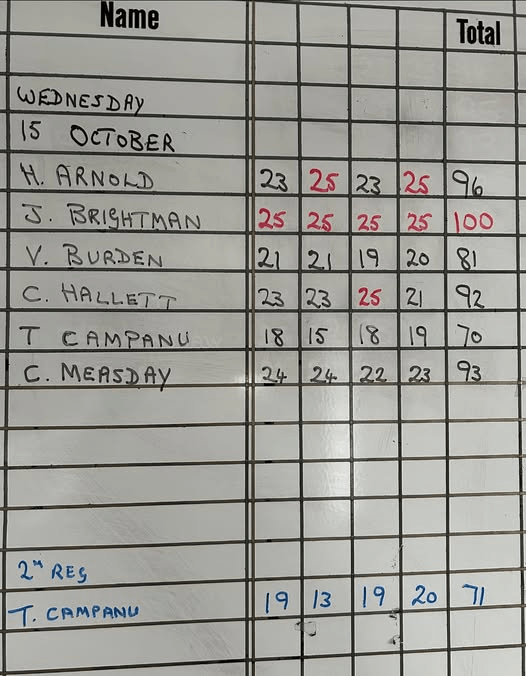 Name Total
WEDNESDAY
15 OCTOBER
H. ARNOLD 23 25 23 25 96
J. BRIGHTMAN 25 25 25 25 100
V. BURDEN 21 21 19 20 81
C. HALLETT 23 23 25 21 92
T CAMPANU 18 15 18 19 70
C. MEASDAY 24 24 22 23 93
2ⁿ REG
T. CAMPANU 19 13 19 20 71